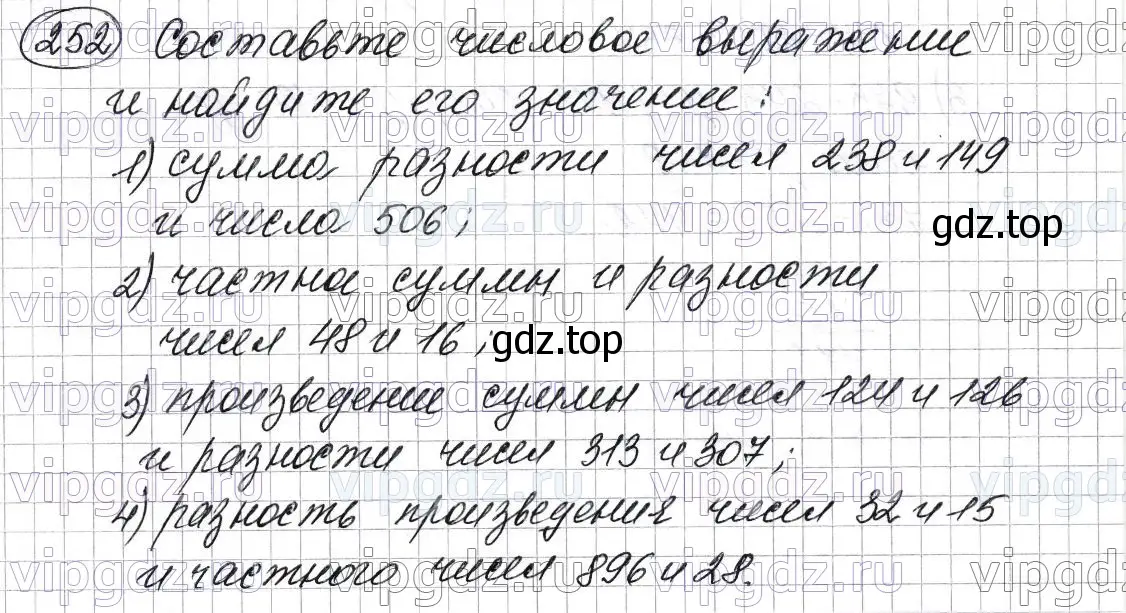 252 Составьте числовое выражение
и найдите его значение:
1) сумма разности чисел 238 и 149
и числа 506;
gdz.top
2) частное суммы и разности
чисел 48 и 16;
gdz.top
3) произведение суммы чисел 124 и 126
и разности чисел 313 и 307;
4) разность произведения чисел 32 и 15
и частного чисел 896 и 28.
vipgdz.ru